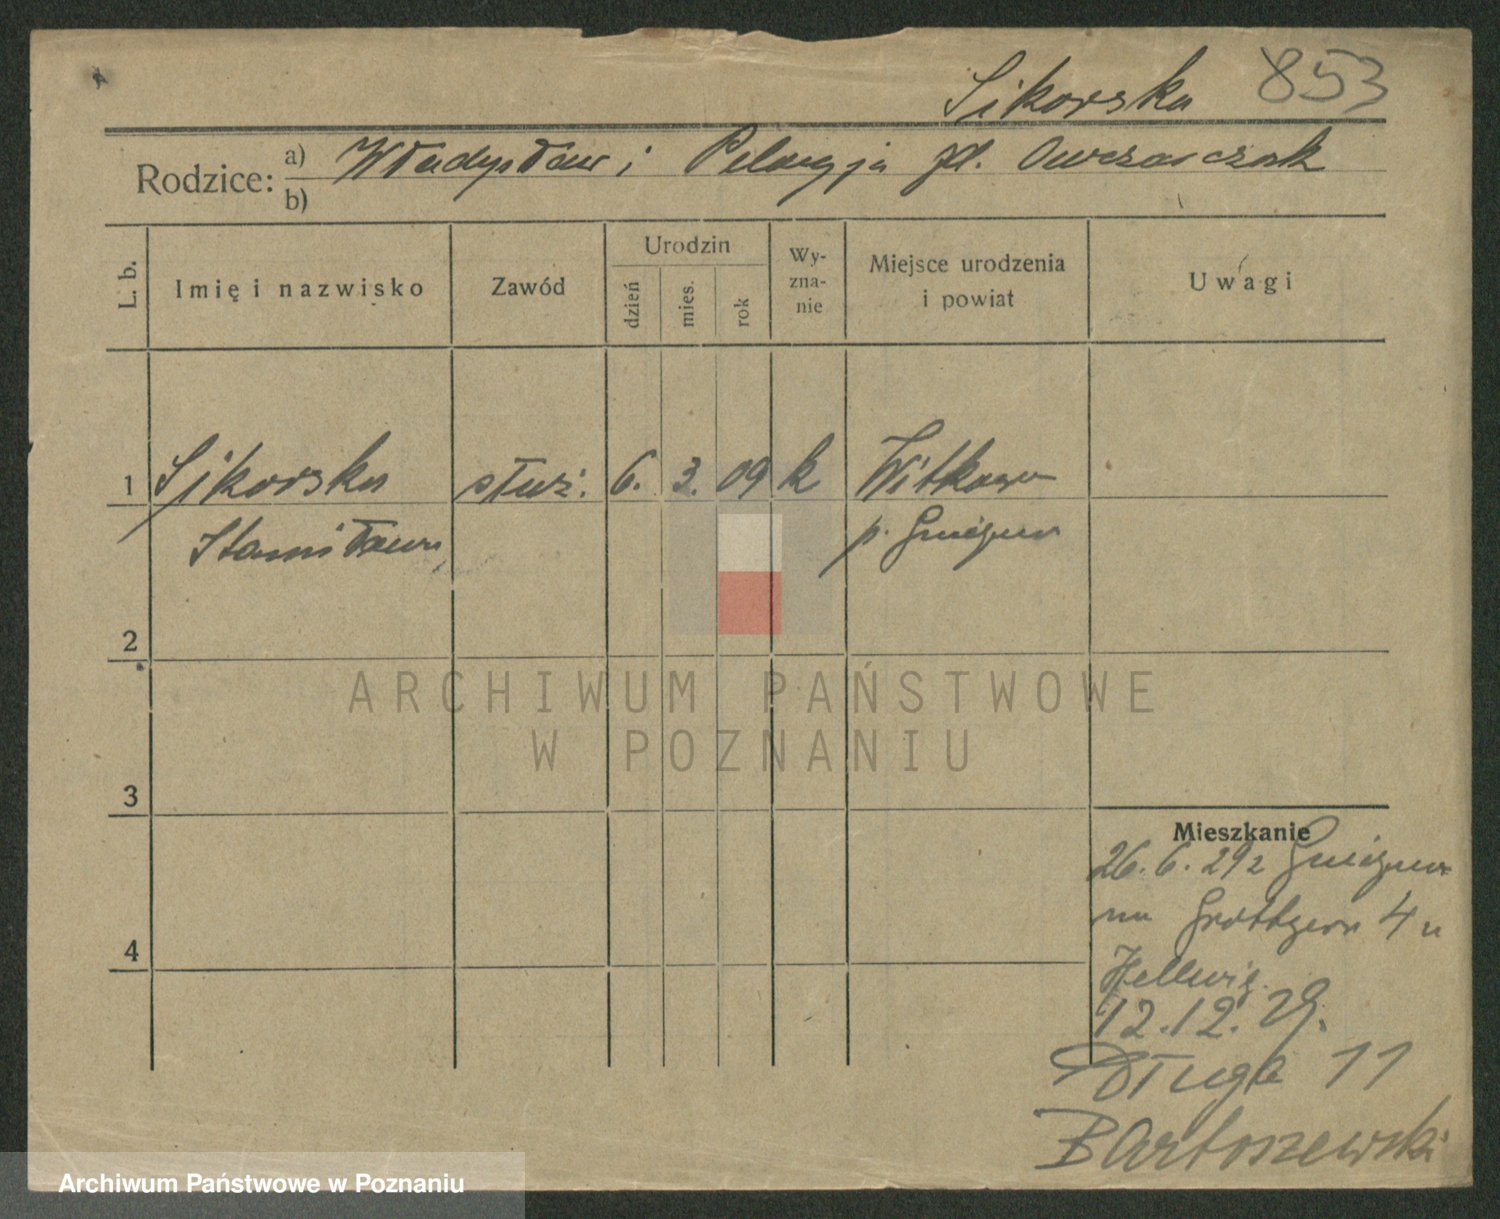 Sikorska 853
Rodzice: a) Władysław i Pelagja
b)
L. b. Imię i nazwisko Zawód Urodzin dzień mies. rok Wy-zna-nie Miejsce urodzenia i powiat Uwagi
1 Sikorska służ. 6. 3. 09 k Witkowo
Stanisława p. Gniezno
2
3
4
Mieszkanie
26. 6. 29 z Gniezna
na Grottgera 4 u
Hellwig.
12.12.29.
Długa 11
Bartoszewski
ARCHIWUM PAŃSTWOWE
W POZNANIU
Archiwum Państwowe w Poznaniu